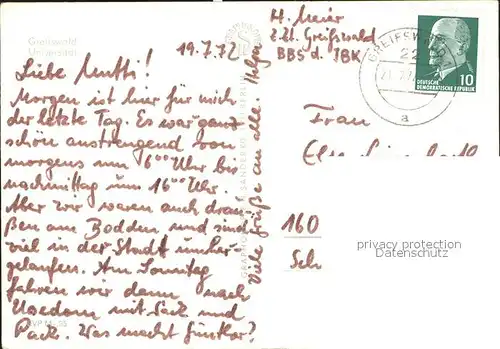 Greifswald
Universität
19.7.72
Liebe Mutti!
Morgen ist hier für mich
der letzte Tag. Es war ganz
schön anstrengend von
morgens um 6⁰⁰ Uhr bis
nachmittag um 16⁰⁰ Uhr.
Aber wir waren auch drau-
ßen am Bodden und sind
viel in der Stadt umher-
gelaufen. Am Sonntag
fahren wir dann nach
Usedom mit Sack und
Pack. Was macht Günther?
Viele Grüße an alle. Helga
H. Meier
z.Zt. Greifswald
BBS d. IBK
GREIFSW
22
a
10
DEUTSCHE
DEMOKRATISCHE REPUBLIK
Frau
160
Sch
privacy protection
Datenschutz